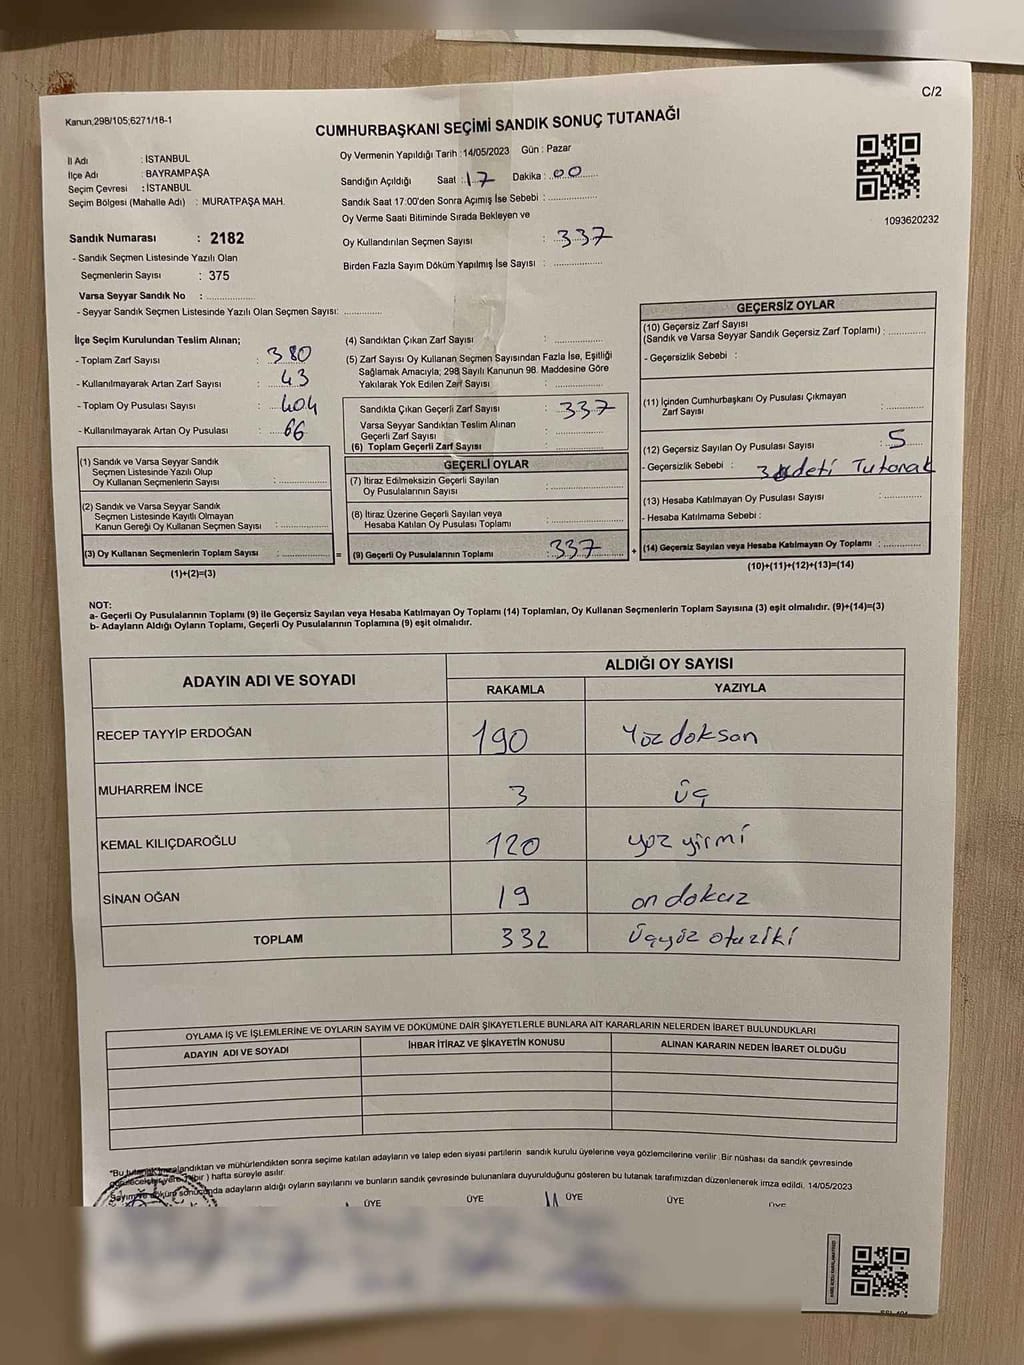 C/2
Kanun;298/105;6271/18-1
CUMHURBAŞKANI SEÇİMİ SANDIK SONUÇ TUTANAĞI
İl Adı : İSTANBUL
İlçe Adı : BAYRAMPAŞA
Seçim Çevresi : İSTANBUL
Seçim Bölgesi (Mahalle Adı) : MURATPAŞA MAH.
Oy Vermenin Yapıldığı Tarih :14/05/2023 Gün : Pazar
Sandığın Açıldığı Saat : 17 Dakika : 00
Sandık Saat 17:00'den Sonra Açımış İse Sebebi :
Oy Verme Saati Bitiminde Sırada Bekleyen ve
Oy Kullandırılan Seçmen Sayısı : 337
Birden Fazla Sayım Döküm Yapılmış İse Sayısı :
1093620232
Sandık Numarası : 2182
- Sandık Seçmen Listesinde Yazılı Olan
Seçmenlerin Sayısı : 375
Varsa Seyyar Sandık No :
- Seyyar Sandık Seçmen Listesinde Yazılı Olan Seçmen Sayısı:
İlçe Seçim Kurulundan Teslim Alınan;
- Toplam Zarf Sayısı : 380
- Kullanılmayarak Artan Zarf Sayısı : 43
- Toplam Oy Pusulası Sayısı : 404
- Kullanılmayarak Artan Oy Pusulası : 66
(1) Sandık ve Varsa Seyyar Sandık
Seçmen Listesinde Yazılı Olup
Oy Kullanan Seçmenlerin Sayısı :
(2) Sandık ve Varsa Seyyar Sandık
Seçmen Listesinde Kayıtlı Olmayan
Kanun Gereği Oy Kullanan Seçmen Sayısı :
(3) Oy Kullanan Seçmenlerin Toplam Sayısı : =
(1)+(2)=(3)
(4) Sandıktan Çıkan Zarf Sayısı :
(5) Zarf Sayısı Oy Kullanan Seçmen Sayısından Fazla İse, Eşitliği
Sağlamak Amacıyla; 298 Sayılı Kanunun 98. Maddesine Göre
Yakılarak Yok Edilen Zarf Sayısı :
Sandıkta Çıkan Geçerli Zarf Sayısı : 337
Varsa Seyyar Sandıktan Teslim Alınan
Geçerli Zarf Sayısı :
(6) Toplam Geçerli Zarf Sayısı :
GEÇERLİ OYLAR
(7) İtiraz Edilmeksizin Geçerli Sayılan
Oy Pusulalarının Sayısı :
(8) İtiraz Üzerine Geçerli Sayılan veya
Hesaba Katılan Oy Pusulası Toplamı :
(9) Geçerli Oy Pusulalarının Toplamı : 337 +
GEÇERSİZ OYLAR
(10) Geçersiz Zarf Sayısı
(Sandık ve Varsa Seyyar Sandık Geçersiz Zarf Toplamı) :
- Geçersizlik Sebebi :
(11) İçinden Cumhurbaşkanı Oy Pusulası Çıkmayan
Zarf Sayısı :
(12) Geçersiz Sayılan Oy Pusulası Sayısı : 5
- Geçersizlik Sebebi : Tutanak
(13) Hesaba Katılmayan Oy Pusulası Sayısı :
- Hesaba Katılmama Sebebi :
(14) Geçersiz Sayılan veya Hesaba Katılmayan Oy Toplamı :
(10)+(11)+(12)+(13)=(14)
NOT:
a- Geçerli Oy Pusulalarının Toplamı (9) ile Geçersiz Sayılan veya Hesaba Katılmayan Oy Toplamı (14) Toplamları, Oy Kullanan Seçmenlerin Toplam Sayısına (3) eşit olmalıdır. (9)+(14)=(3)
b- Adayların Aldığı Oyların Toplamı, Geçerli Oy Pusulalarının Toplamına (9) eşit olmalıdır.
ADAYIN ADI VE SOYADI
ALDIĞI OY SAYISI
RAKAMLA YAZIYLA
RECEP TAYYİP ERDOĞAN 190 Yüz doksan
MUHARREM İNCE 3 üç
KEMAL KILIÇDAROĞLU 120 yüz yirmi
SİNAN OĞAN 19 on dokuz
TOPLAM 332 Üçyüz otuziki
OYLAMA İŞ VE İŞLEMLERİNE VE OYLARIN SAYIM VE DÖKÜMÜNE DAİR ŞİKAYETLERLE BUNLARA AİT KARARLARIN NELERDEN İBARET BULUNDUKLARI
ADAYIN ADI VE SOYADI İHBAR İTİRAZ VE ŞİKAYETİN KONUSU ALINAN KARARIN NEDEN İBARET OLDUĞU
"Bu tutanak imzalandıktan ve mühürlendikten sonra seçime katılan adayların ve talep eden siyasi partilerin sandık kurulu üyelerine veya gözlemcilerine verilir .Bir nüshası da sandık çevresinde
görülecek bir yere 1 (bir ) hafta süreyle asılır.
Sayım ve döküm sonucunda adayların aldığı oyların sayılarını ve bunların sandık çevresinde bulunanlara duyurulduğunu gösteren bu tutanak tarafımızdan düzenlenerek imza edildi. 14/05/2023
ÜYE ÜYE ÜYE ÜYE ÜYE